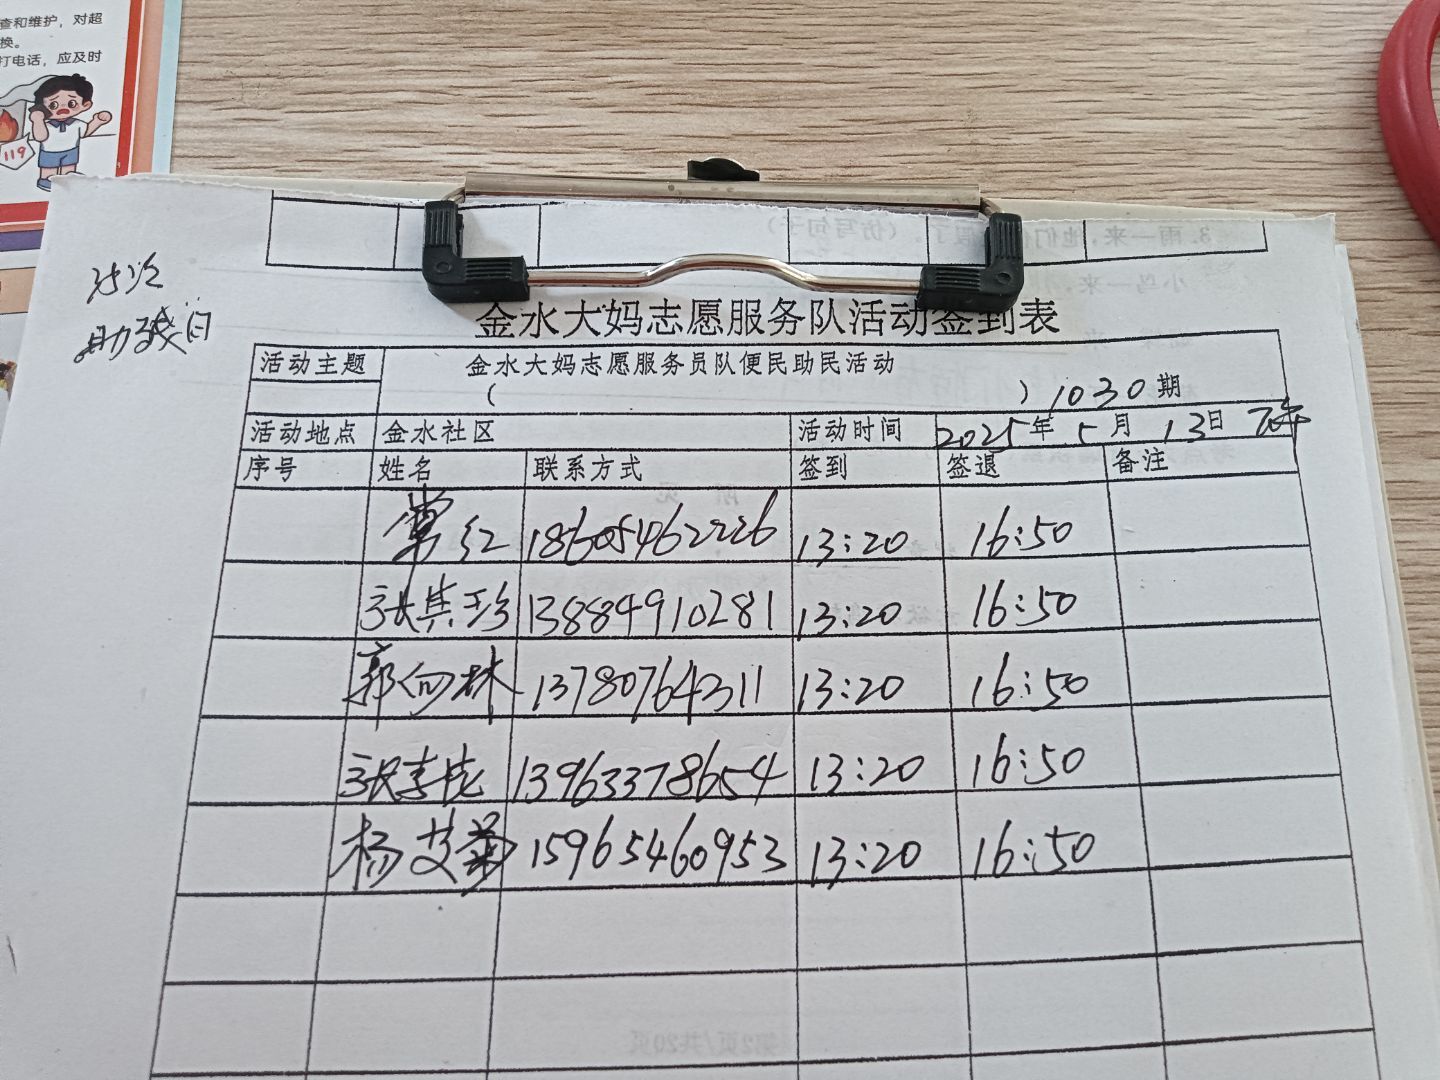 查和维护，对超
换。
打电话，应及时
119
助残日
金水大妈志愿服务队活动签到表
活动主题 金水大妈志愿服务员队便民助民活动
（ ）1030期
活动地点 金水社区 活动时间 2025年5月13日 下午
序号 姓名 联系方式 签到 签退 备注
常红 18605462226 13:20 16:50
张其珍 13884910281 13:20 16:50
郭向林 13780764311 13:20 16:50
张 13963378654 13:20 16:50
杨艾菊 15965460953 13:20 16:50